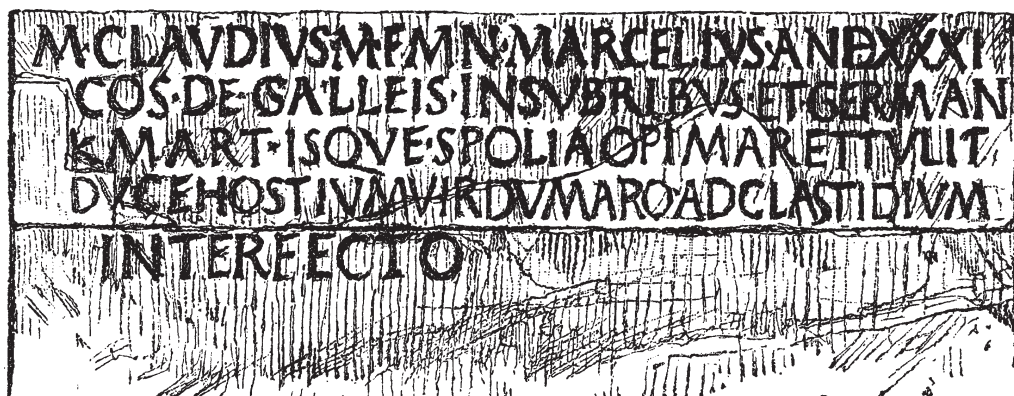 M·CLAVDIVS·M·F·M N·MARCELLVS·AN DXXXI
COS·DE·GALLEIS·INSVBRIBVS·ET·GERMAN
K·MART·ISQVE·SPOLIA OPIMA RETTVLIT
DVCE HOSTIVM VIRDVMARO AD CLASTIDIVM
INTERFECTO